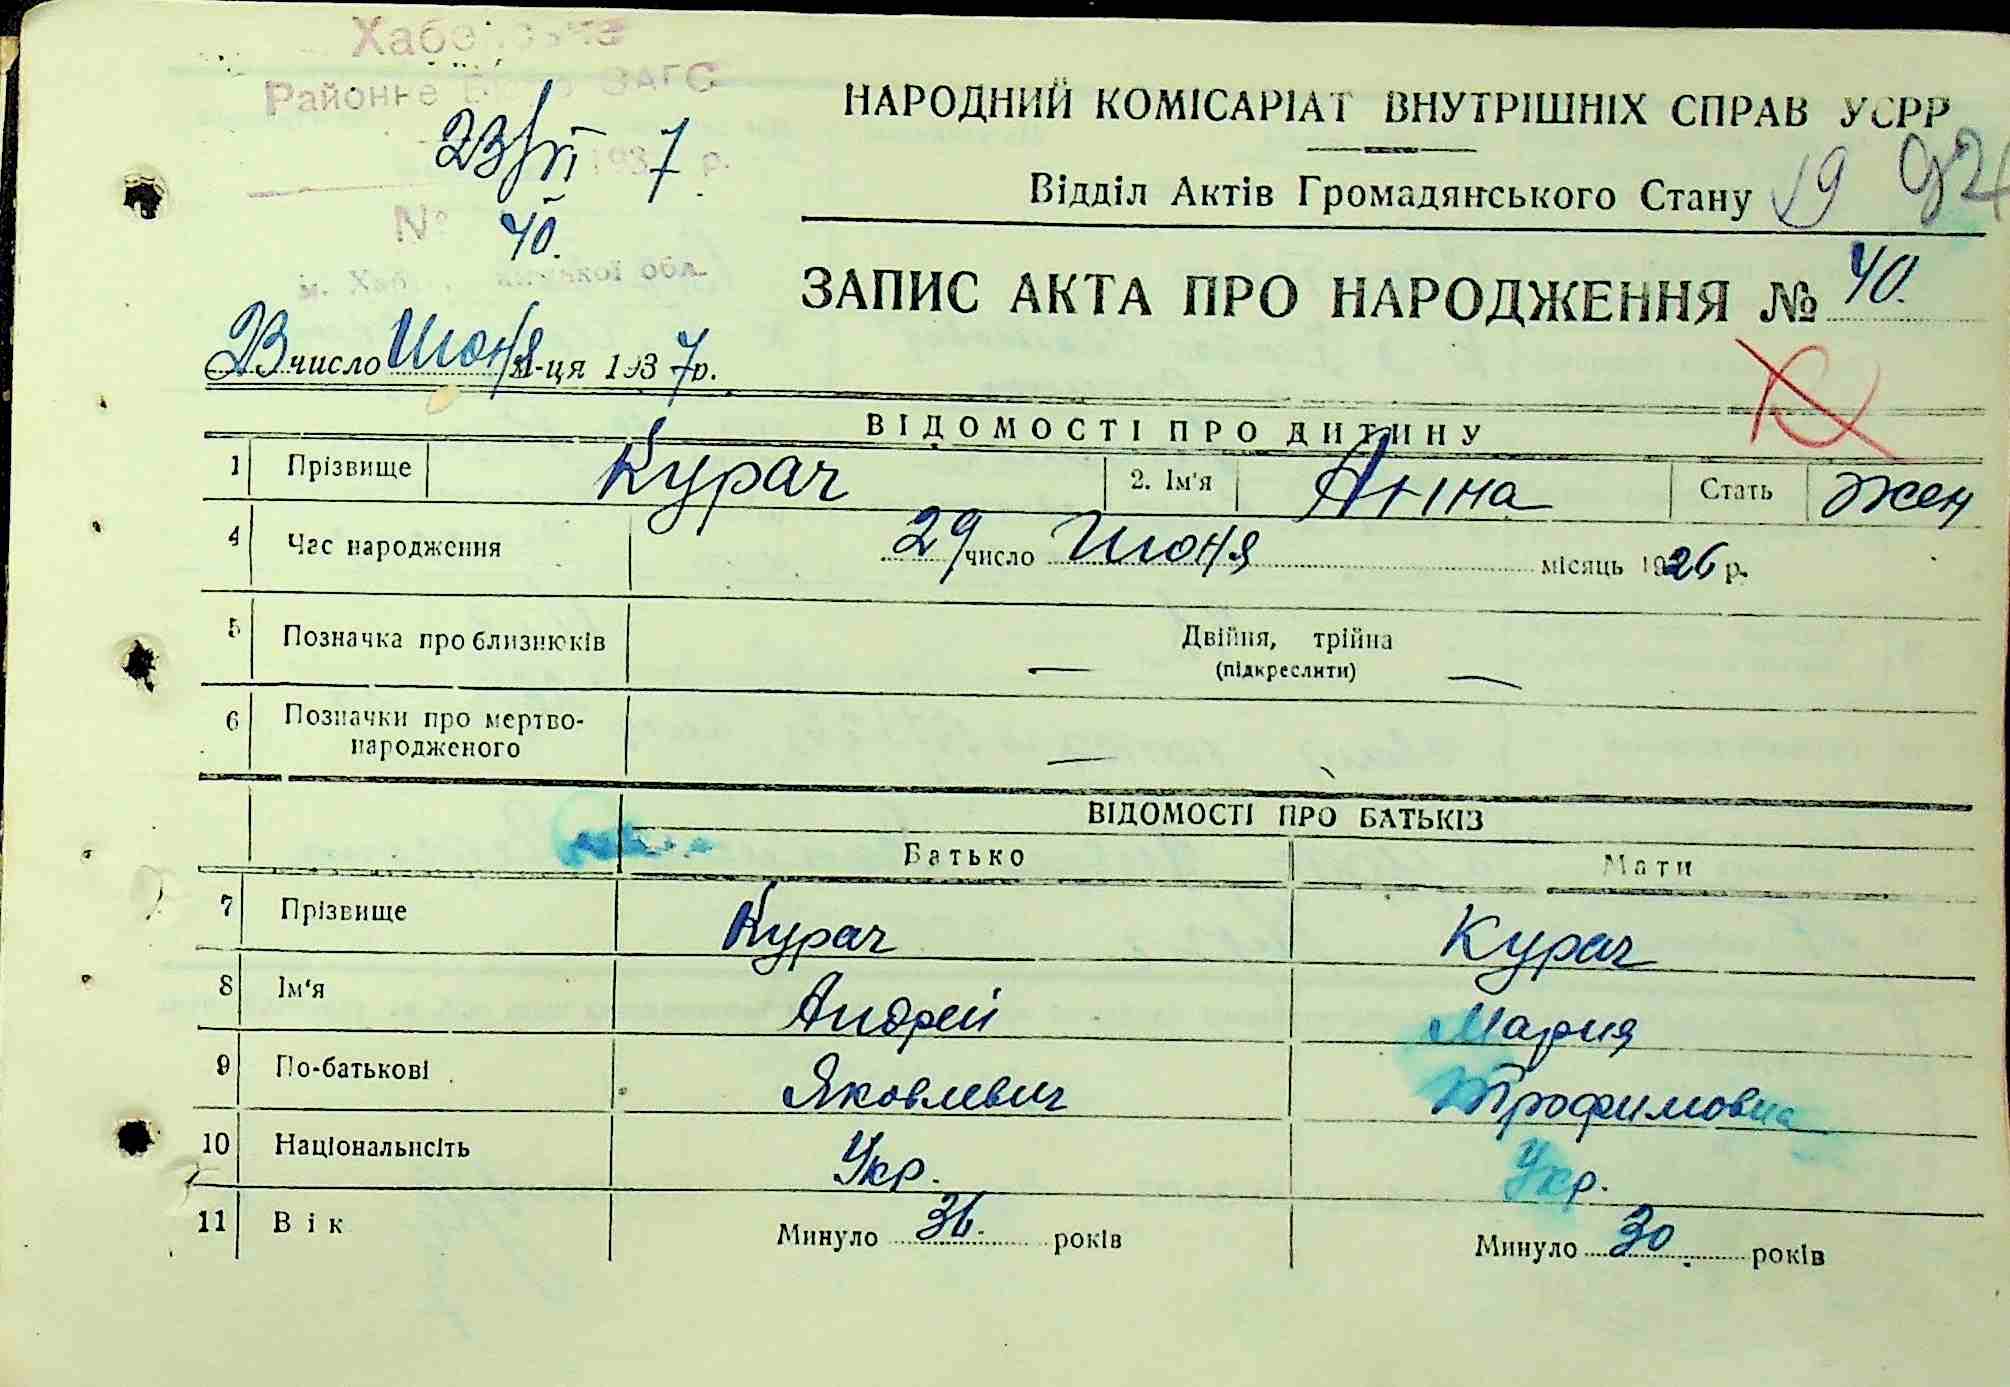 Районне Бюро ЗАГС
23/VI 1937 р.
№ 40.
НАРОДНИЙ КОМІСАРІАТ ВНУТРІШНІХ СПРАВ УСРР
Відділ Актів Громадянського Стану 19
ЗАПИС АКТА ПРО НАРОДЖЕННЯ № 40.
23 число Июня м-ця 1937 р.
ВІДОМОСТІ ПРО ДИТИНУ
1 Прізвище Курач 2. Ім'я Анна Стать жен
4 Час народження 29 число Июня місяць 1926 р.
5 Позначка про близнюків Двійня, трійна
(підкреслити)
6 Позначки про мертво-
народженого —
ВІДОМОСТІ ПРО БАТЬКІВ
Батько Мати
7 Прізвище Курач Курач
8 Ім'я Андрей Мария
9 По-батькові Яковлевич Трофимовна
10 Національність Укр. Укр.
11 Вік Минуло 36. років Минуло 30 років